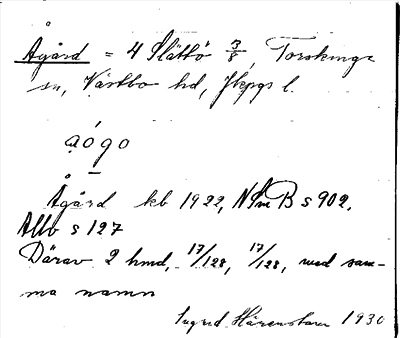 Ågård = 4 Slättö 3/8, Torskinge
sn, Västbo hd, Jkpgs l.
a̤ógo̱
Ågård kb 1922, NSmB s 902,
Allb s 127
Därav 2 hmd, 17/128, 17/128, med sam-
ma namn
Ingrid Härenstam 1930